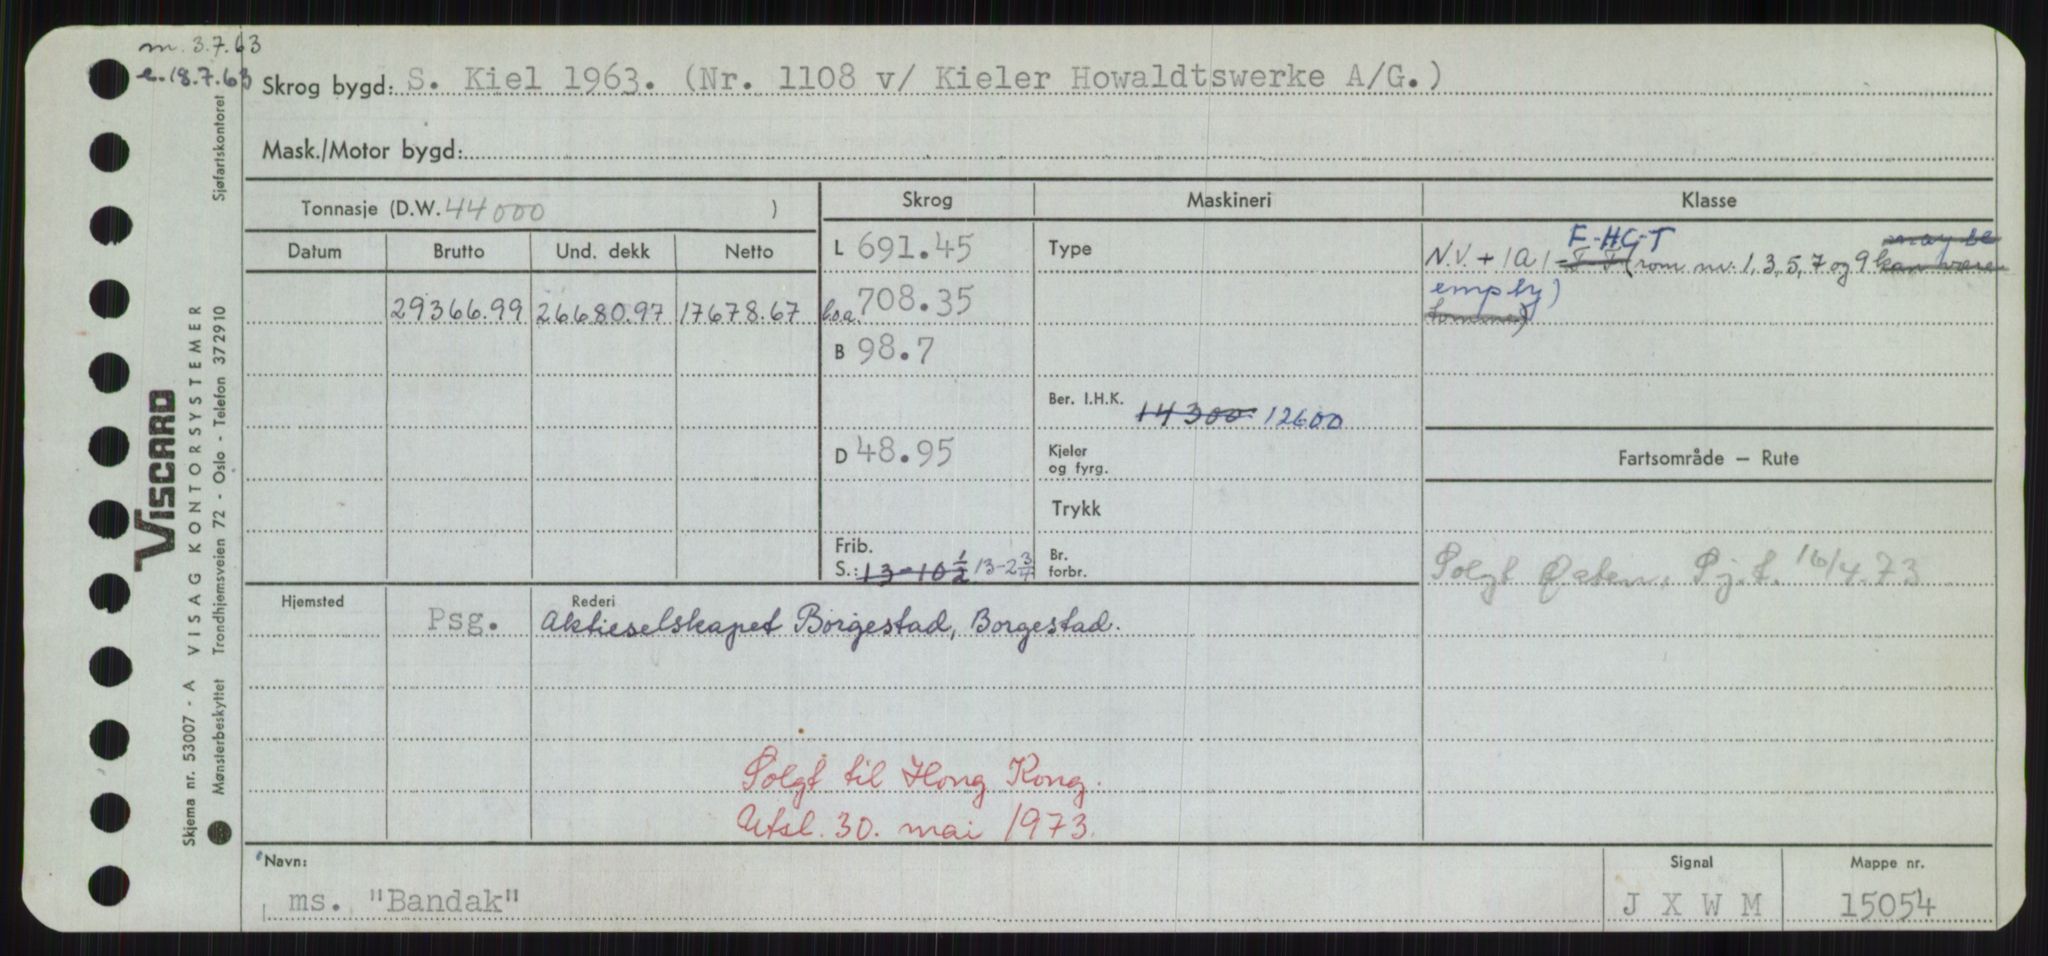 m. 3.7.63
e. 18.7.63
Skrog bygd: S. Kiel 1963. (Nr. 1108 v/ Kieler Howaldtswerke A/G.)
Sjøfartskontoret
Mask./Motor bygd:
Tonnasje (D.W. 44000 )
Skrog
Maskineri
Klasse
Datum
Brutto
Und. dekk
Netto
29366.99
26680.97
17678.67
L 691.45
l.o.a. 708.35
B 98.7
D 48.95
Frib.
S.: 13-10 1/2 13-2 3/4
Type
Ber. I.H.K.
14300 12600
Kjeler
og fyrg.
Trykk
Br.
forbr.
F-HC-T may be
N.V. + 1A1 - T T (rom nr. 1, 3, 5, 7 og 9 kan være
empty)
tomme)
Fartsområde – Rute
Solgt Østen, Sj.t. 16/4.73
Hjemsted
Psg.
Rederi
Aktieselskapet Borgestad, Borgestad.
Solgt til Hong Kong.
Utsl. 30. mai 1973.
Navn:
ms. "Bandak"
Signal
J X W M
Mappe nr.
15054
VISCARD
VISAG KONTORSYSTEMER
Skjema nr. 53007 - A
Mønsterbeskyttet
Trondhjemsveien 72 - Oslo - Telefon 372910